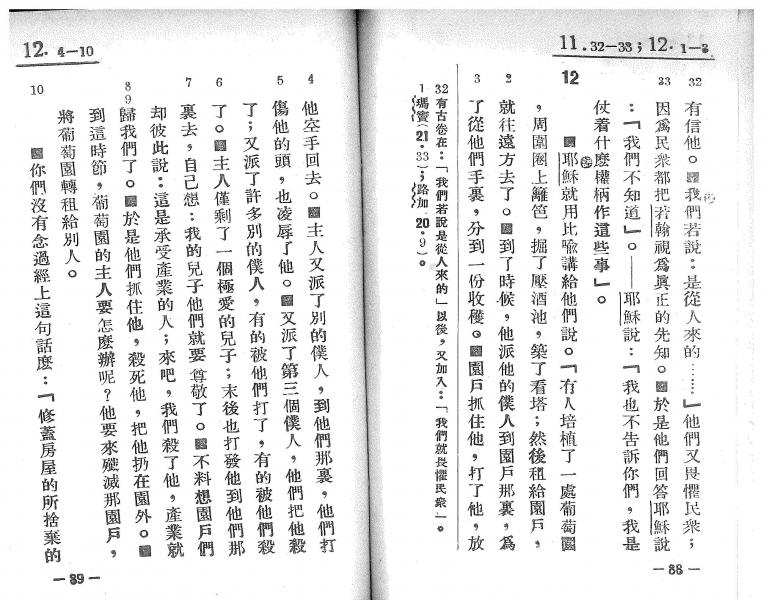 11.32—33；12.1—3
32 有信他。我們若說：是從人來的……」他們又畏懼民衆；
33 因爲民衆都把若翰視爲眞正的先知。於是他們回答耶穌說
：「我們不知道」。——耶穌說：「我也不告訴你們，我是
仗着什麽權柄作這些事」。
12 耶穌就用比喩講給他們說。「有人培植了一處葡萄園
，周圍圈上籬笆，掘了壓酒池，築了看塔；然後租給園戶，
2 就往遠方去了。到了時候，他派他的僕人到園戶那裏，爲
3 了從他們手裏，分到一份收穫。園戶抓住他，打了他，放
32 有古卷在：「我們若說是從人來的」以後，又加入：「我們就畏懼民衆」。
1 瑪竇（21．33）；路加 20．9）。
—88—
12. 4—10
4 他空手回去。主人又派了別的僕人，到他們那裏，他們打
5 傷他的頭，也凌辱了他。又派了第三個僕人，他們把他殺
了；又派了許多別的僕人，有的被他們打了，有的被他們殺
6 了。主人僅剩了一個極愛的兒子；末後也打發他到他們那
7 裏去，自己想：我的兒子他們就要尊敬了。不料想園戶們
却彼此說：這是承受產業的人；來吧，我們殺了他，產業就
8 9 歸我們了。於是他們抓住他，殺死他，把他扔在園外。
到這時節，葡萄園的主人要怎麽辦呢？他要來殲滅那園戶，
將葡萄園轉租給別人。
10 你們沒有念過經上這句話麽：「修蓋房屋的所捨棄的
—89—